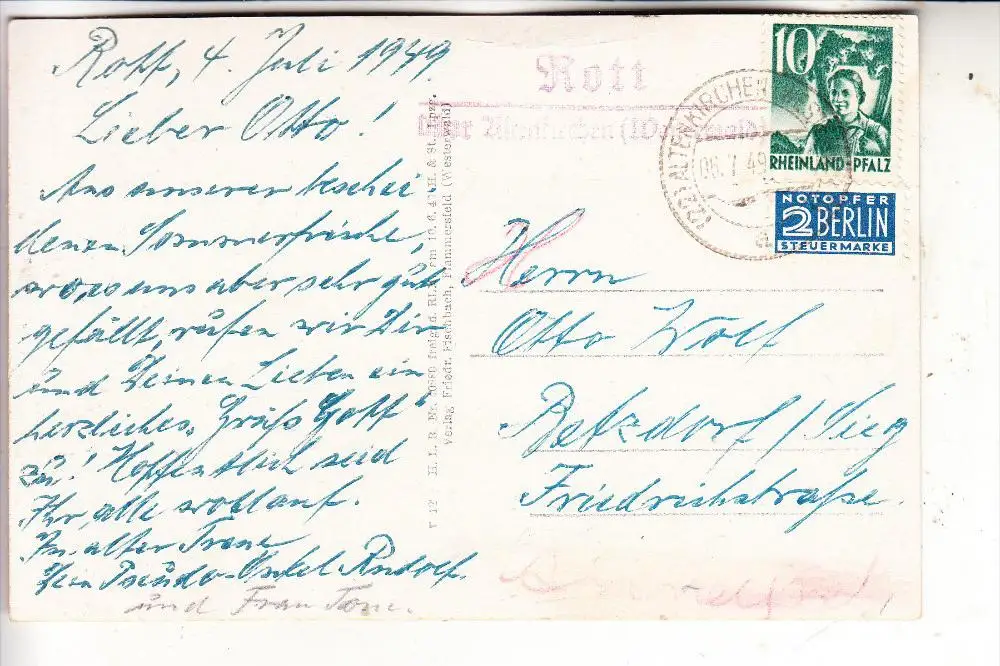 Rott, 4. Juli 1949.
Lieber Otto!
Aus unserer beschei
denen Sommerfrische,
wo es uns aber sehr gut
gefällt, rufen wir Dir
und Deinen Lieben ein
herzliches „Grüß Gott"
zu! Hoffentlich seid
Ihr alle wohlauf.
In alter Treue
Dein Pseudo-Onkel Rudolf.
und Frau Tone.
V 12 H. L. R. Nr.
Verlag Friedr. Eischbach, Flammersfeld (Westerwald)
Rott
über Altenkirchen (Westerwald)
ALTENKIRCHEN
06.7.49
10
RHEINLAND-PFALZ
NOTOPFER
2 BERLIN
STEUERMARKE
Herrn
Otto Wolf
Betzdorf/Sieg
Friedrichstraße.